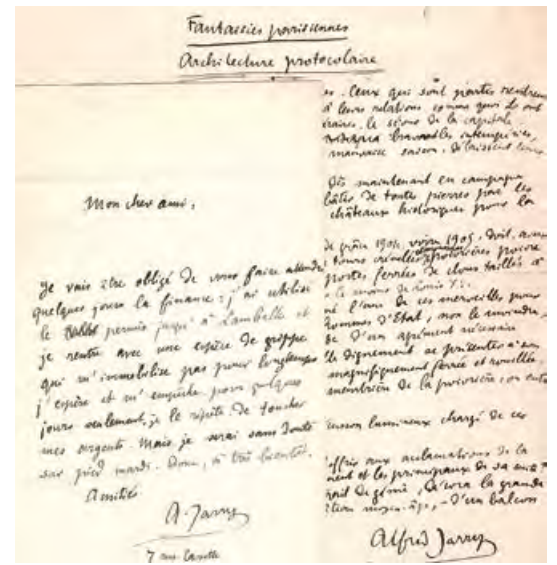 Fantaisies parisiennes
Architecture protocolaire
Mon cher ami,
Je vais être obligé de vous faire attendre
quelques jours la finance : j'ai utilisé
le permis jusqu'à Lamballe et
je rentre avec une espèce de grippe
qui m'immobilise pas pour longtemps
j'espère et m'empêche pour quelques
jours seulement, je le répète de toucher
mes argents. Mais je serai sans doute
sur pied mardi. Donc, à très bientôt.
Amitiés
A. Jarry
7 rue Cassette
es. Ceux qui sont partis
à leurs relations comme quoi ils ont
le séjour de la capitale
les intempéries,
mauvaise saison,
Dès maintenant en campagne
bâtis de toutes pièces par les
châteaux historiques pour la
1904, voire 1905, doit
portes ferrées de clous taillés à
le moins de Louis XI.
né l'une de ces merveilles pour
hommes d'Etat, non le moindre,
de d'un agrément nécessaire
dignement se présenter à son
magnifiquement ferrée et rouillée
lumineux chargé de ces
offrir aux acclamations de la
ment et les principaux de sa suite
la grande
moyen-âge, - d'un balcon
Alfred Jarry